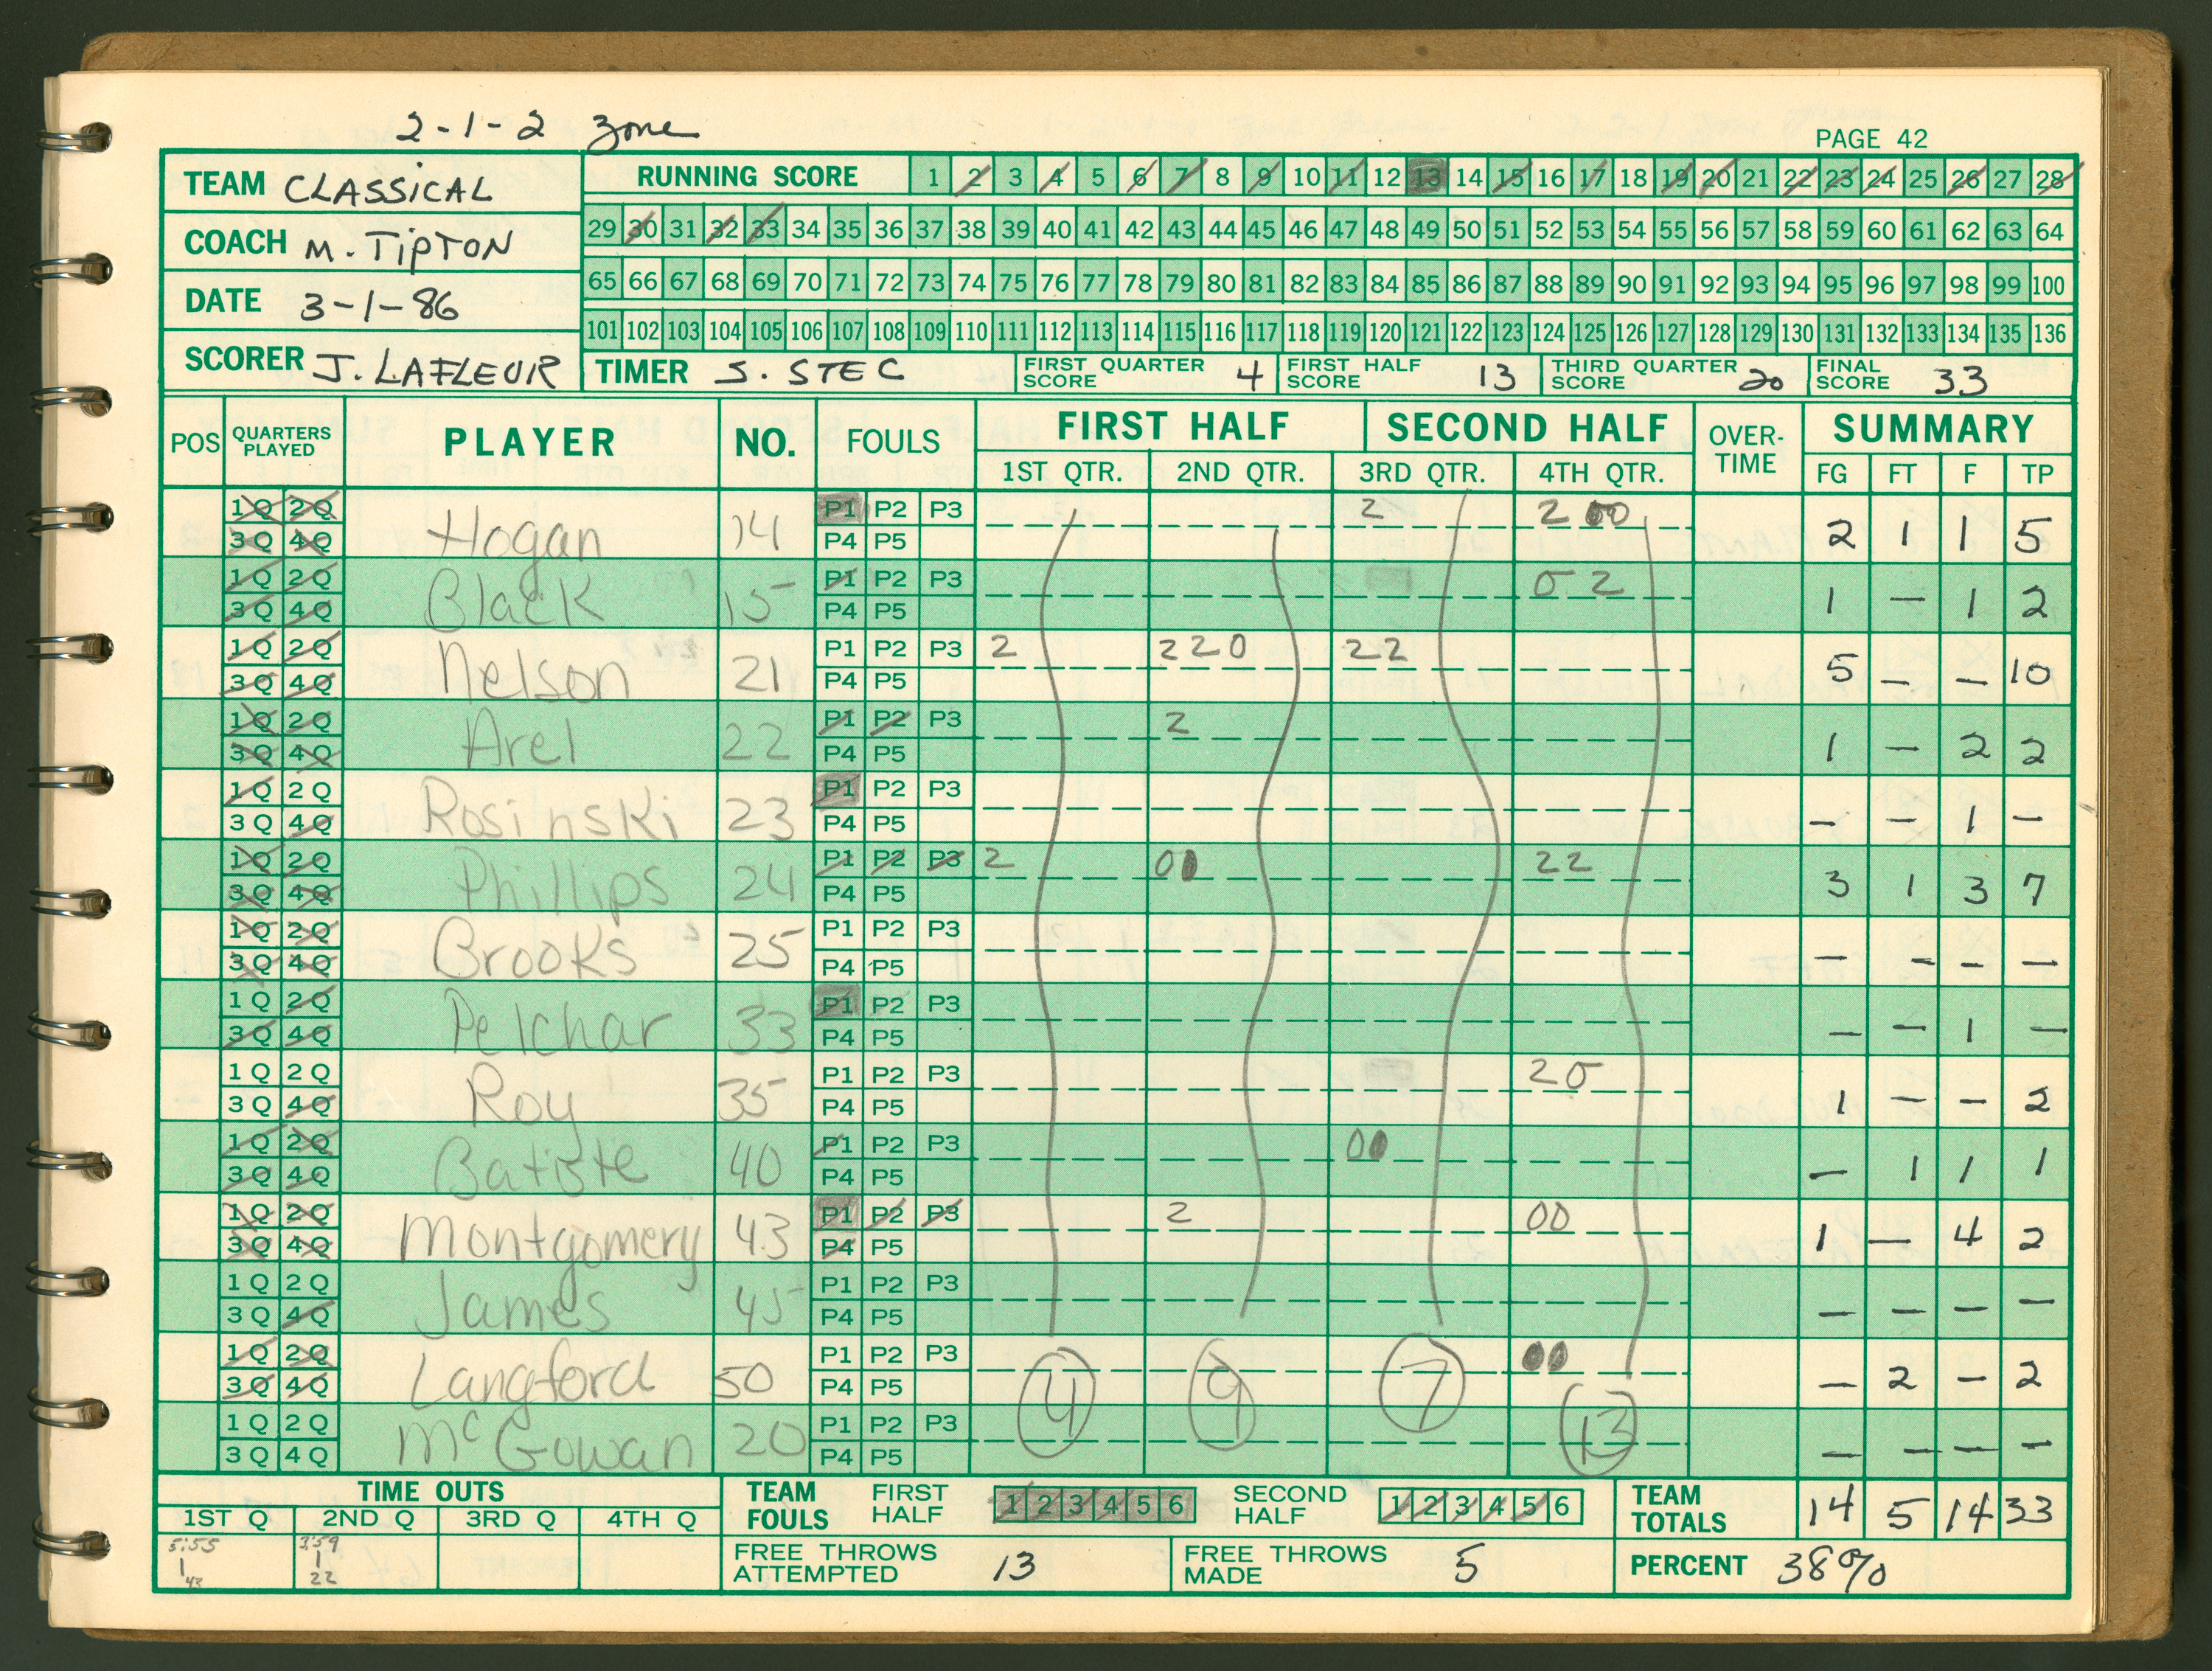 2-1-2 zone
PAGE 42
TEAM CLASSICAL
COACH M. TIPTON
DATE 3-1-86
SCORER J. LAFLEUR
RUNNING SCORE 1 2 3 4 5 6 7 8 9 10 11 12 13 14 15 16 17 18 19 20 21 22 23 24 25 26 27 28
29 30 31 32 33 34 35 36 37 38 39 40 41 42 43 44 45 46 47 48 49 50 51 52 53 54 55 56 57 58 59 60 61 62 63 64
65 66 67 68 69 70 71 72 73 74 75 76 77 78 79 80 81 82 83 84 85 86 87 88 89 90 91 92 93 94 95 96 97 98 99 100
101 102 103 104 105 106 107 108 109 110 111 112 113 114 115 116 117 118 119 120 121 122 123 124 125 126 127 128 129 130 131 132 133 134 135 136
TIMER S. STEC FIRST QUARTER SCORE 4 FIRST HALF SCORE 13 THIRD QUARTER SCORE 20 FINAL SCORE 33
POS QUARTERS PLAYED PLAYER NO. FOULS FIRST HALF SECOND HALF OVER-TIME SUMMARY
1ST QTR. 2ND QTR. 3RD QTR. 4TH QTR. FG FT F TP
1Q 2Q Hogan 14 P1 P2 P3 2 2 00 2 1 1 5
3Q 4Q P4 P5
1Q 2Q Black 15 P1 P2 P3 0 2 1 — 1 2
3Q 4Q P4 P5
1Q 2Q Nelson 21 P1 P2 P3 2 2 2 0 2 2 5 — — 10
3Q 4Q P4 P5
1Q 2Q Arel 22 P1 P2 P3 2 1 — 2 2
3Q 4Q P4 P5
1Q 2Q Rosinski 23 P1 P2 P3 — — 1 —
3Q 4Q P4 P5
1Q 2Q Phillips 24 P1 P2 P3 2 00 2 2 3 1 3 7
3Q 4Q P4 P5
1Q 2Q Brooks 25 P1 P2 P3 — — — —
3Q 4Q P4 P5
1Q 2Q Pelchar 33 P1 P2 P3 — — 1 —
3Q 4Q P4 P5
1Q 2Q Roy 35 P1 P2 P3 2 0 1 — — 2
3Q 4Q P4 P5
1Q 2Q Batiste 40 P1 P2 P3 00 — 1 1 1
3Q 4Q P4 P5
1Q 2Q Montgomery 43 P1 P2 P3 2 00 1 — 4 2
3Q 4Q P4 P5
1Q 2Q James 45 P1 P2 P3 — — — —
3Q 4Q P4 P5
1Q 2Q Langford 50 P1 P2 P3 00 — 2 — 2
3Q 4Q P4 P5
4 9 7 13
1Q 2Q McGowan 20 P1 P2 P3 — — — —
3Q 4Q P4 P5
TIME OUTS
1ST Q 2ND Q 3RD Q 4TH Q
5:55 3:59
1 1
43 22
TEAM FOULS FIRST HALF 1 2 3 4 5 6 SECOND HALF 1 2 3 4 5 6
TEAM TOTALS 14 5 14 33
FREE THROWS ATTEMPTED 13 FREE THROWS MADE 5 PERCENT 38%